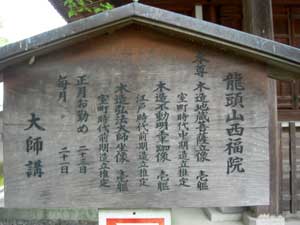 龍頭山西福院
本尊 木造地蔵菩薩立像 壱躯
室町時代中期造立推定
木造不動明王坐像 壱躯
江戸時代前期造立推定
木造弘法大師坐像 壱躯
室町時代前期造立推定
正月お勤め 二十三日
毎月 二十一日
大師講